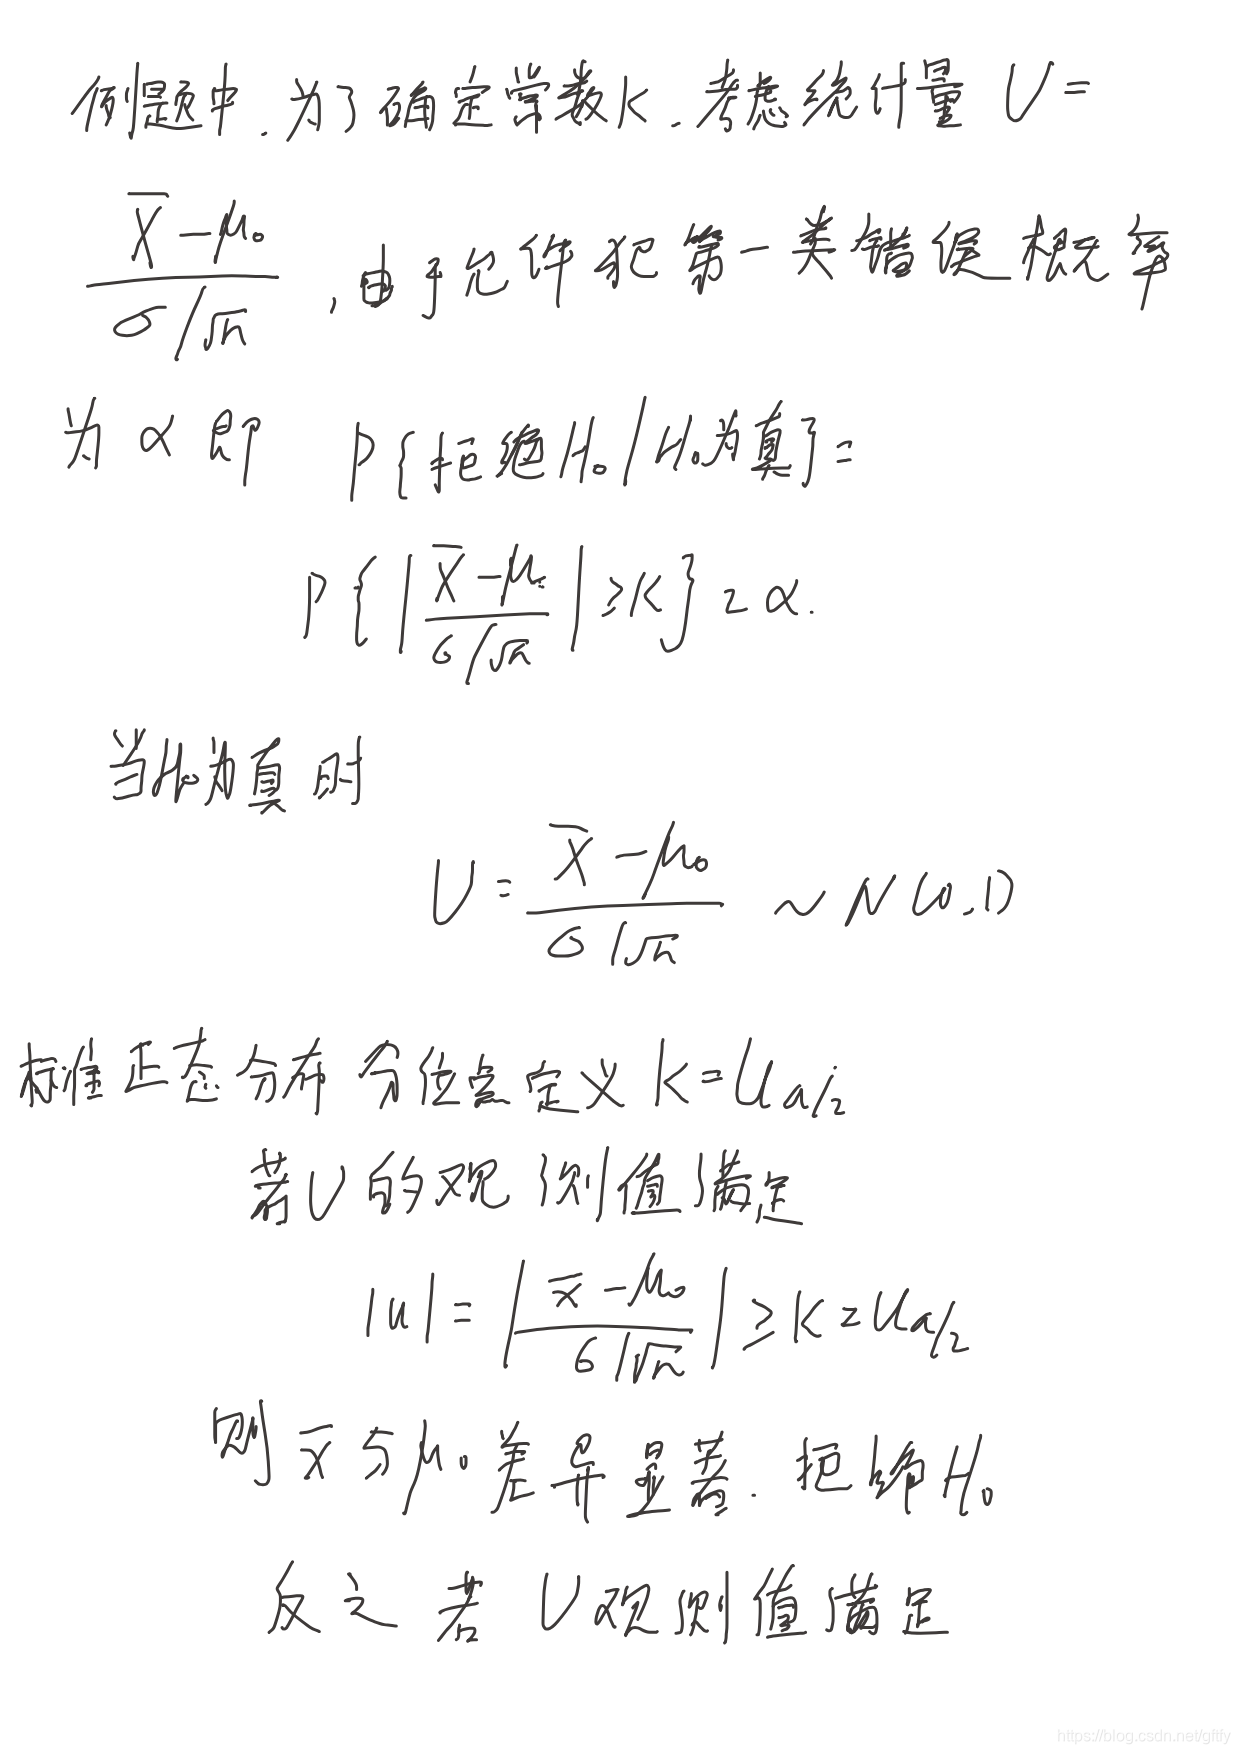 例题中,为了确定常数K,考虑统计量 U =
(X̄ - μ₀)/(σ/√n) ,由于允许犯第一类错误概率
为 α 即 P{拒绝H₀/H₀为真} =
P{|(X̄ - μ₀)/(σ/√n)| ≥ K} = α.
当H₀为真时
U = (X̄ - μ₀)/(σ/√n) ~ N(0,1)
标准正态分布 分位点定义 K = U_{α/2}
若U的观测值满足
|u| = |(x̄ - μ₀)/(σ/√n)| ≥ K = U_{α/2}
则 x̄ 与 μ₀ 差异显著. 拒绝H₀
反之 若 U观测值满足
https://blog.csdn.net/gftfy